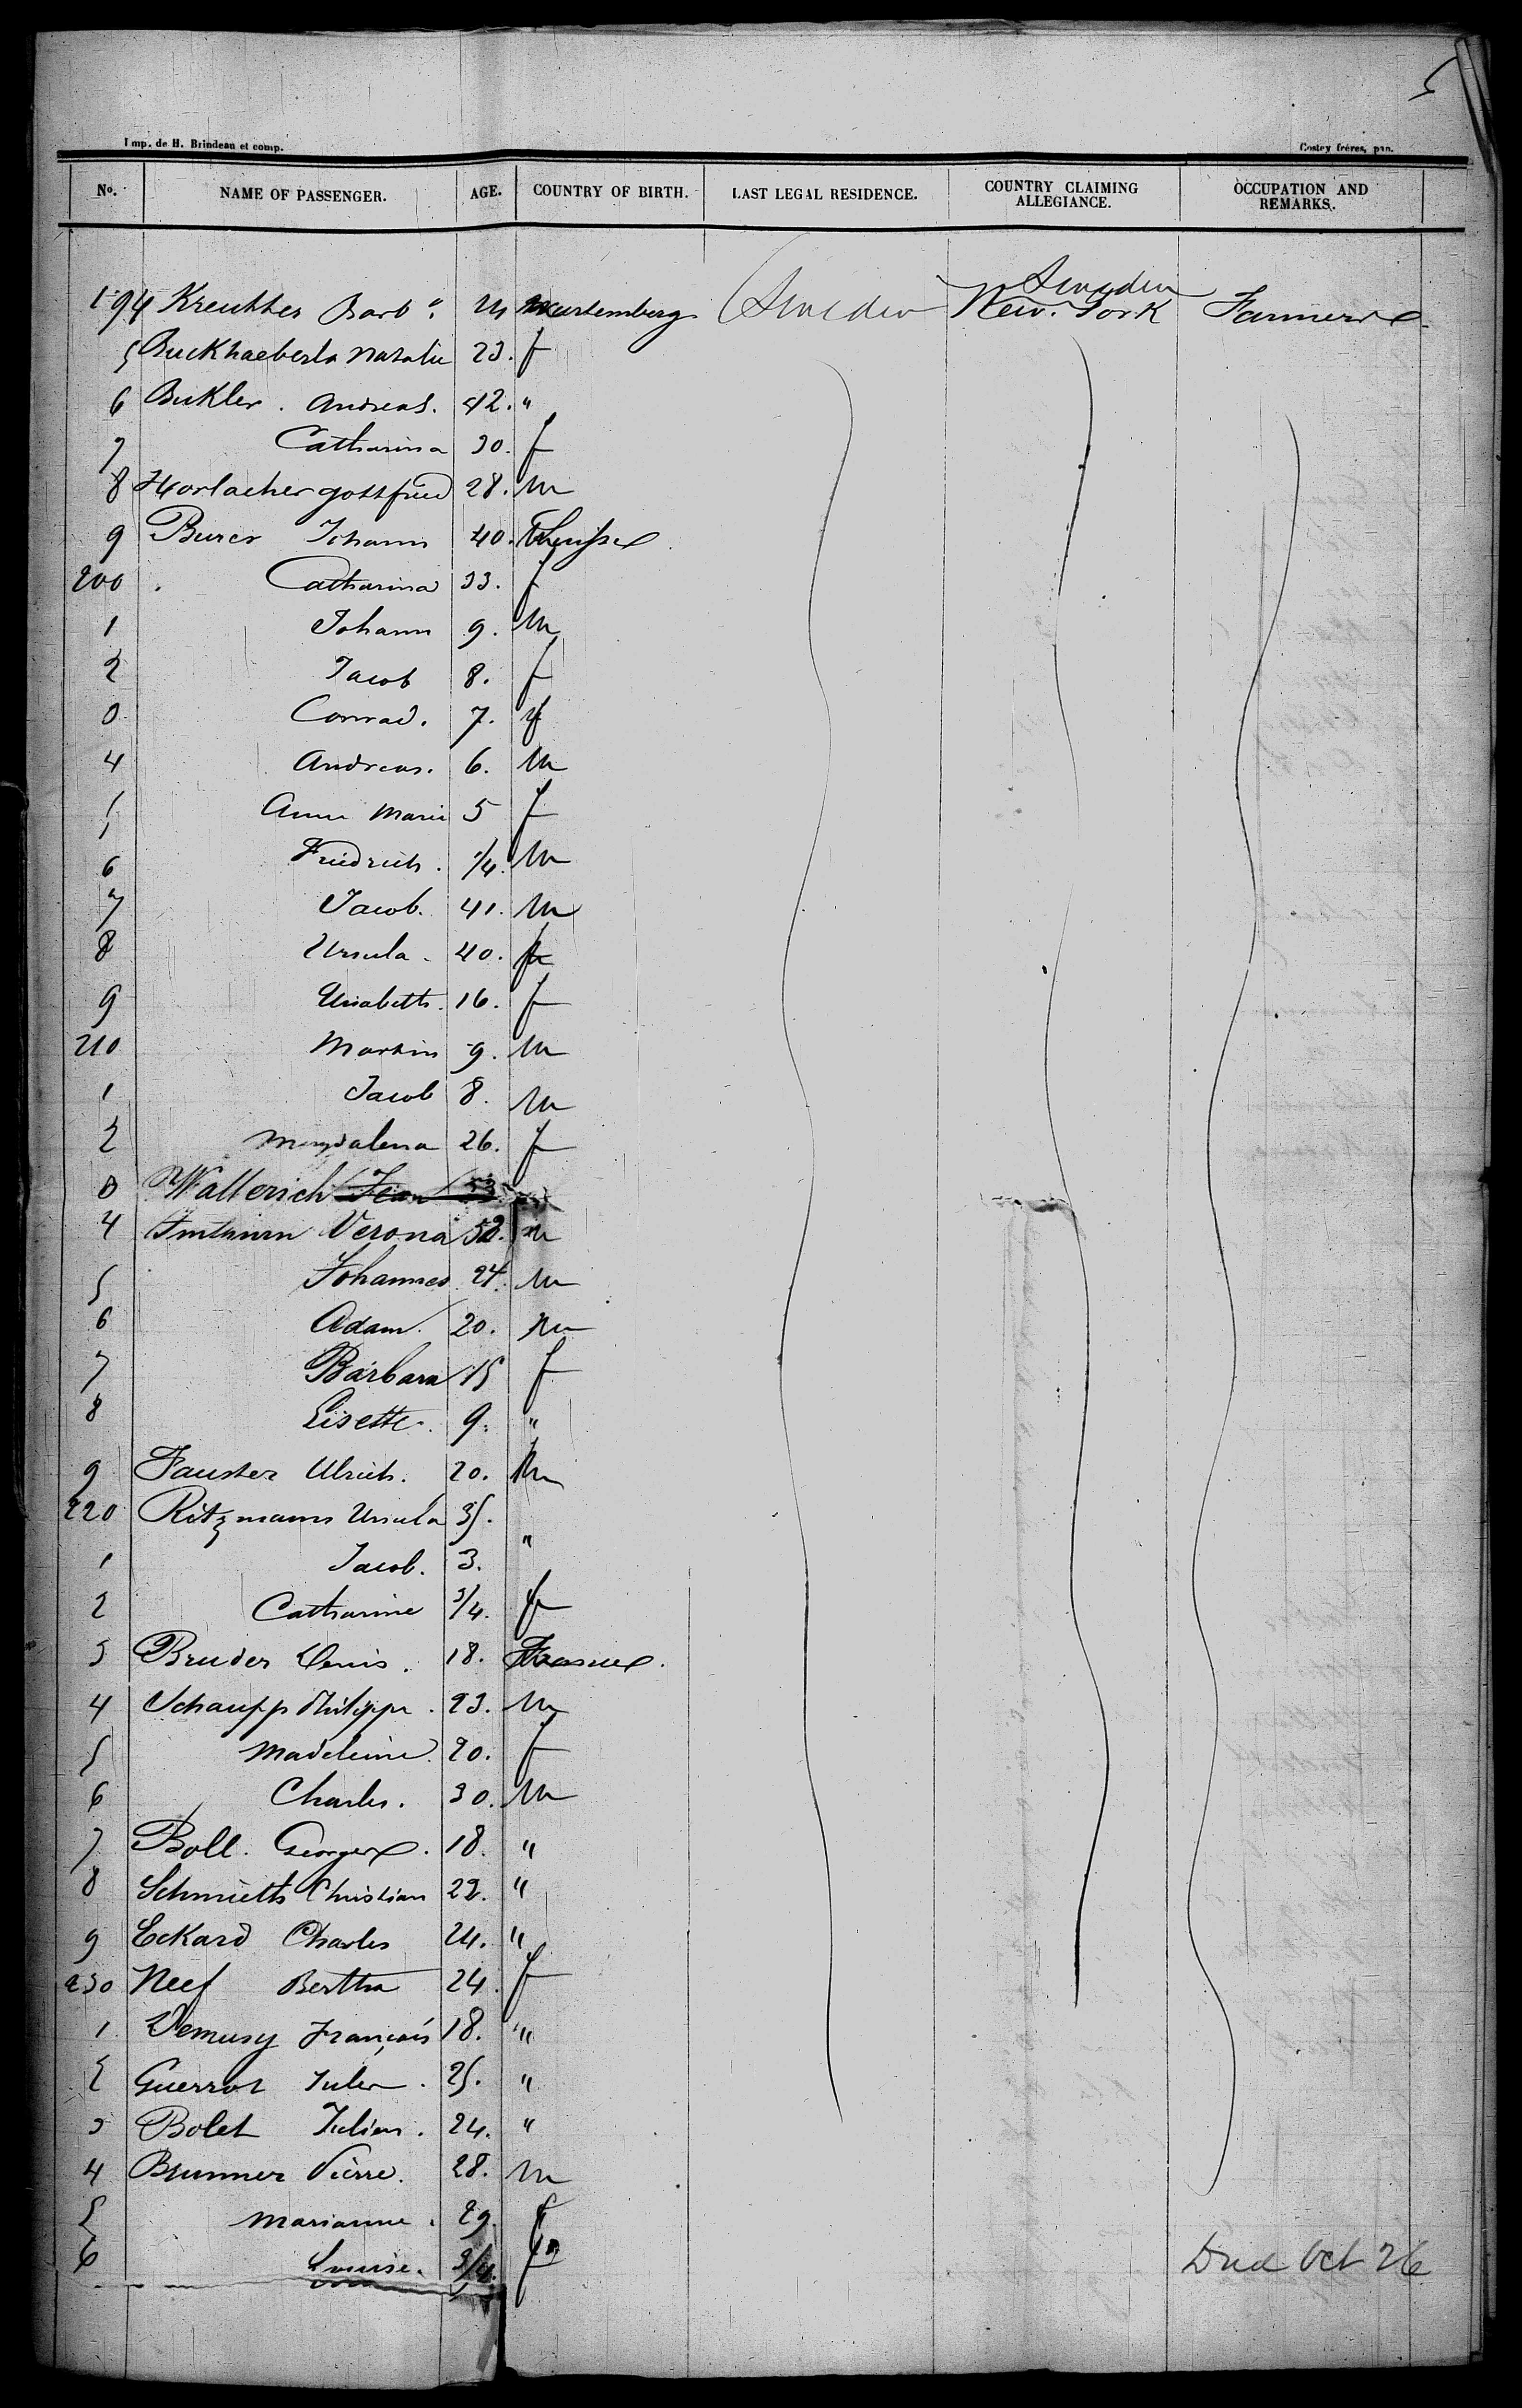 5
Imp. de H. Brindeau et comp. Costey fréres, pan.
No. NAME OF PASSENGER. AGE. COUNTRY OF BIRTH. LAST LEGAL RESIDENCE. COUNTRY CLAIMING ALLEGIANCE. OCCUPATION AND REMARKS.
Sweden
194 Kreutter Barb a 24 Wurtemberg Sweden New York Farmer
5 Buckhaeberle Natalie 23. f
6 Bukler. Andreas. 42. "
7 Catharina 30. f
8 Horlacher Gottfried 28. m
9 Burer Johann 40.
200 . Catharina 33. f
1 Johann 9. m
2 Jacob 8. f
0 Conrad. 7. f
4 Andreas. 6. m
5 Anne Marie 5 f
6 Friedrich. 1/4. m
7 Jacob. 41. m
8 Ursula. 40. f
9 Elisabeth. 16. f
210 Martin 9. m
1 Jacob 8. m
2 Magdalena 26. f
0 Wallerich Jean 53
4 Imthurn Verona 52. m
5 Johannes 24. m
6 Adam. 20. m
7 Barbara 15 f
8 Lisette. 9. "
9 Fauster Ulrich. 20. m
220 Ritzmann Ursula 35.
1 Jacob. 3. "
2 Catharine 3/4. f
3 Bruder Denis. 18. France.
4 Schaupp Philippe. 23. m
5 Madeleine. 20. f
6 Charles. 30. m
7 Boll. George. 18. "
8 Schmieth Christian 22. "
9 Eckard Charles 24. "
230 Neef Bertha 24. f
1. Demusy François 18. "
2 Guerrot Jules. 25. "
3 Bolet Julien. 24. "
4 Brunner Pierre. 28. m
5 Marianne. 29. f
6 Louise. 3/4. f Died Oct 26